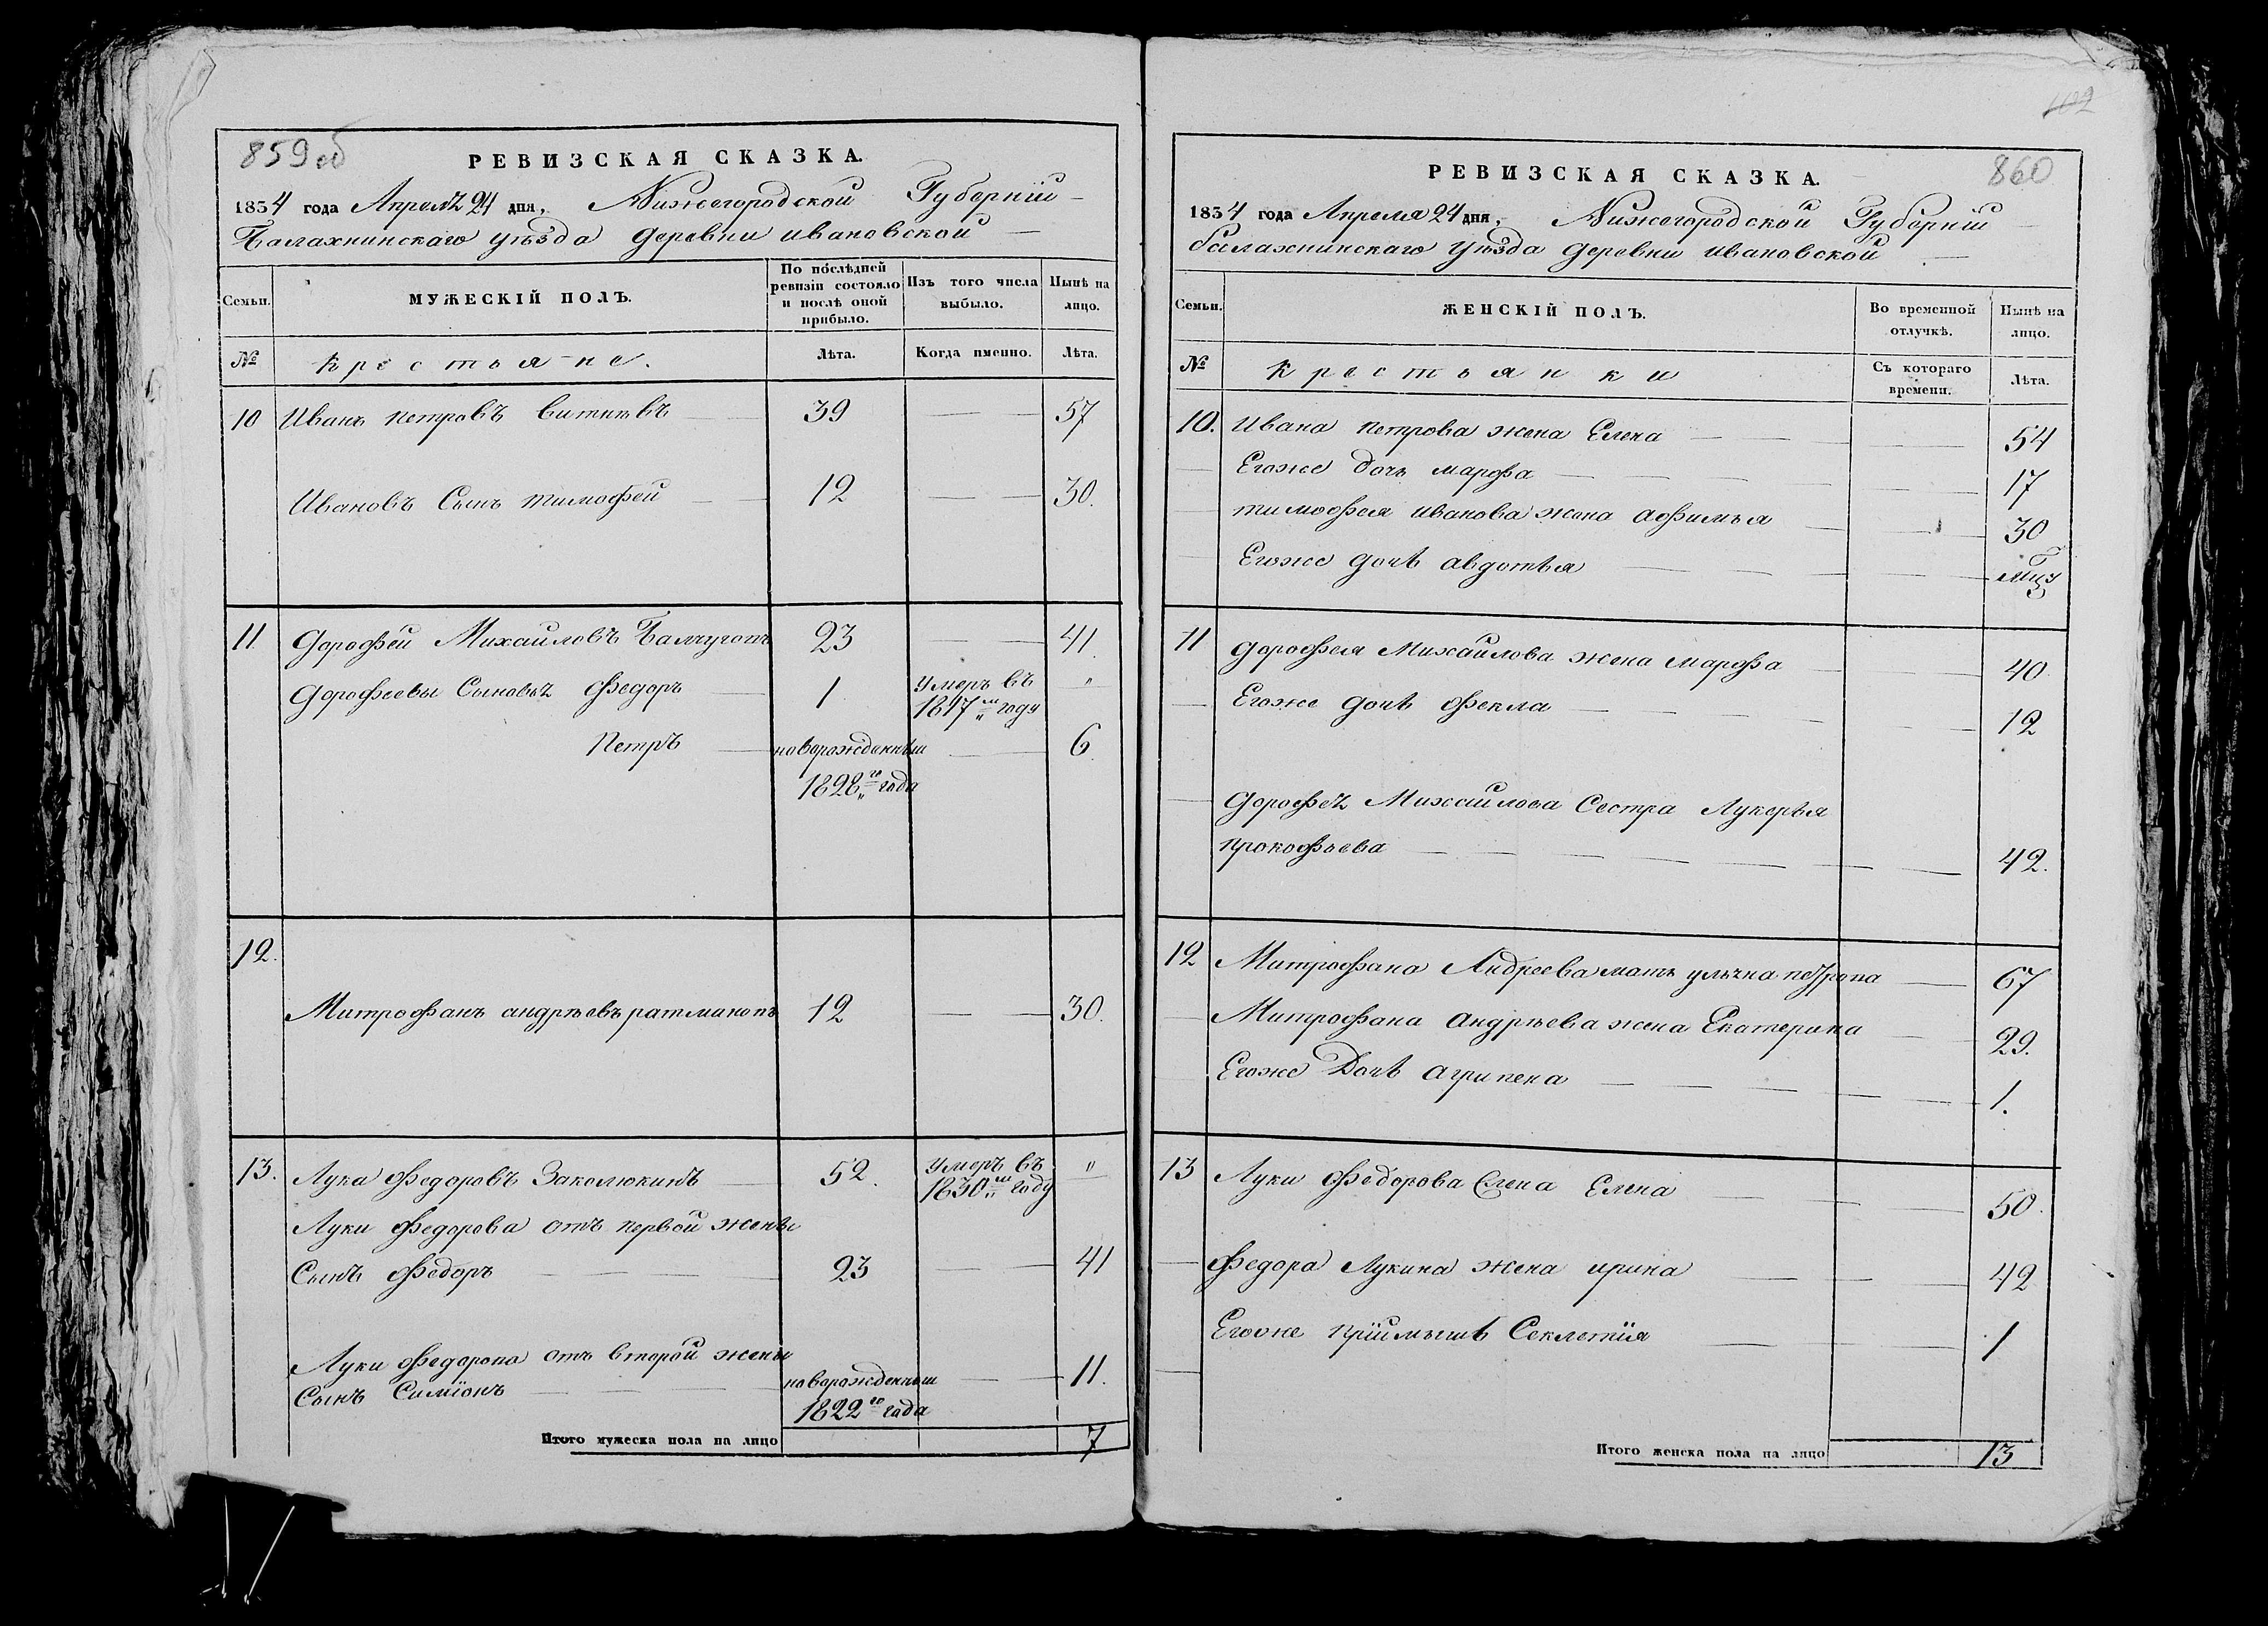 859 об
РЕВИЗСКАЯ СКАЗКА.
1834 года Апреля 24 дня, Нижегородской Губернии
Балахнинскаго уѣзда деревни ивановской
Семьи.
МУЖЕСКІЙ ПОЛЪ.
По послѣдней ревизіи состояло и послѣ оной прибыло.
Изъ того числа выбыло.
Нынѣ на лицо.
№
крестьяне.
Лѣта.
Когда именно.
Лѣта.
10 Иванъ петровъ 39 57
Ивановъ Сынъ тимофей 12 30.
11 Дорофей Михайловъ 23 41.
Дорофеевы Сыновья Федоръ 1 умеръ въ 1817м году "
Петръ новорожденный 1828го года 6
12.
Митрофанъ андрѣевъ ратмановъ 12 30.
13. Лука Федоровъ Заколюкинъ 52. умеръ въ 1830м году "
Луки Федорова отъ первой жены
Сынъ Федоръ 23 41
Луки Федорова отъ второй жены
Сынъ Симіонъ новорожденный 1822го года 11.
Итого мужеска пола на лицо 7
102
860
РЕВИЗСКАЯ СКАЗКА.
1834 года Апреля 24 дня, Нижегородской Губерніи
балахнинскаго уѣзда деревни ивановской
Семьи.
ЖЕНСКІЙ ПОЛЪ.
Во временной отлучкѣ.
Нынѣ на лицо.
№
крестьянки
Съ котораго времени.
Лѣта.
10. Ивана петрова жена Елена 54
Егоже дочь марфа 17
тимофея иванова жена афимья 30
Егоже дочь авдотья
11 дорофея Михайлова жена марфа 40
Егоже дочь фекла 12
Дорофея Михайлова Сестра Лукерья
прокофьева 42.
12 Митрофана Андреева мать 67
Митрофана андрѣева жена Екатерина 29.
Егоже Дочь агрипена 1.
13 Луки Федорова Елена 50.
Федора Лукина жена ирина 42
Егоже пріимышъ Секлетія 1
Итого женска пола на лицо 13